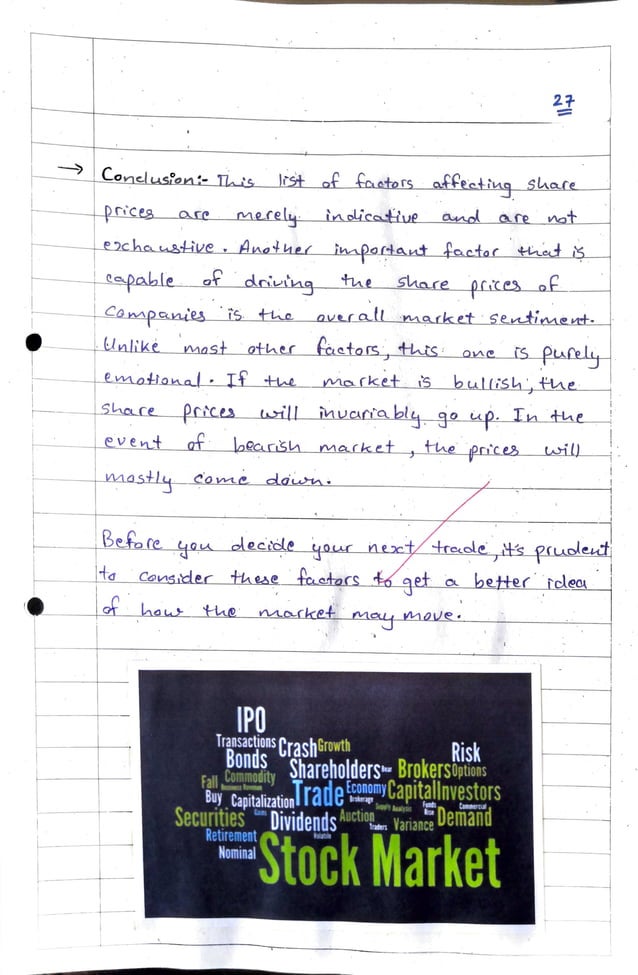 27
→ Conclusion:- This list of factors affecting share
prices are merely indicative and are not
exchaustive. Another important factor that is
capable of driving the share prices of
Companies is the overall market sentiment.
Unlike most other factors, this one is purely
emotional. If the market is bullish, the
share prices will invariably go up. In the
event of bearish market, the prices will
mostly come down.
Before you decide your next trade, it's prudent
to consider these factors to get a better idea
of how the market may move.
IPO
Transactions Crash Growth Risk
Bonds Shareholders Bear Brokers Options
Fall Commodity Economy Capital Investors
Buy Capitalization Trade Brokerage Supply Analysis Funds Rise Commercial
Securities Gains Dividends Auction Traders Variance Demand
Retirement Volatile
Nominal Stock Market